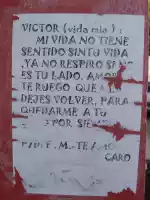 VICTOR (vida mia):
MI VIDA NO TIENE
SENTIDO SIN TU VIDA
,YA NO RESPIRO SI NO
ES TU LADO. AMOR
TE RUEGO QUE
DEJES VOLVER, PARA
QUEDARME A TU
POR SIE
M. TE A
CARO